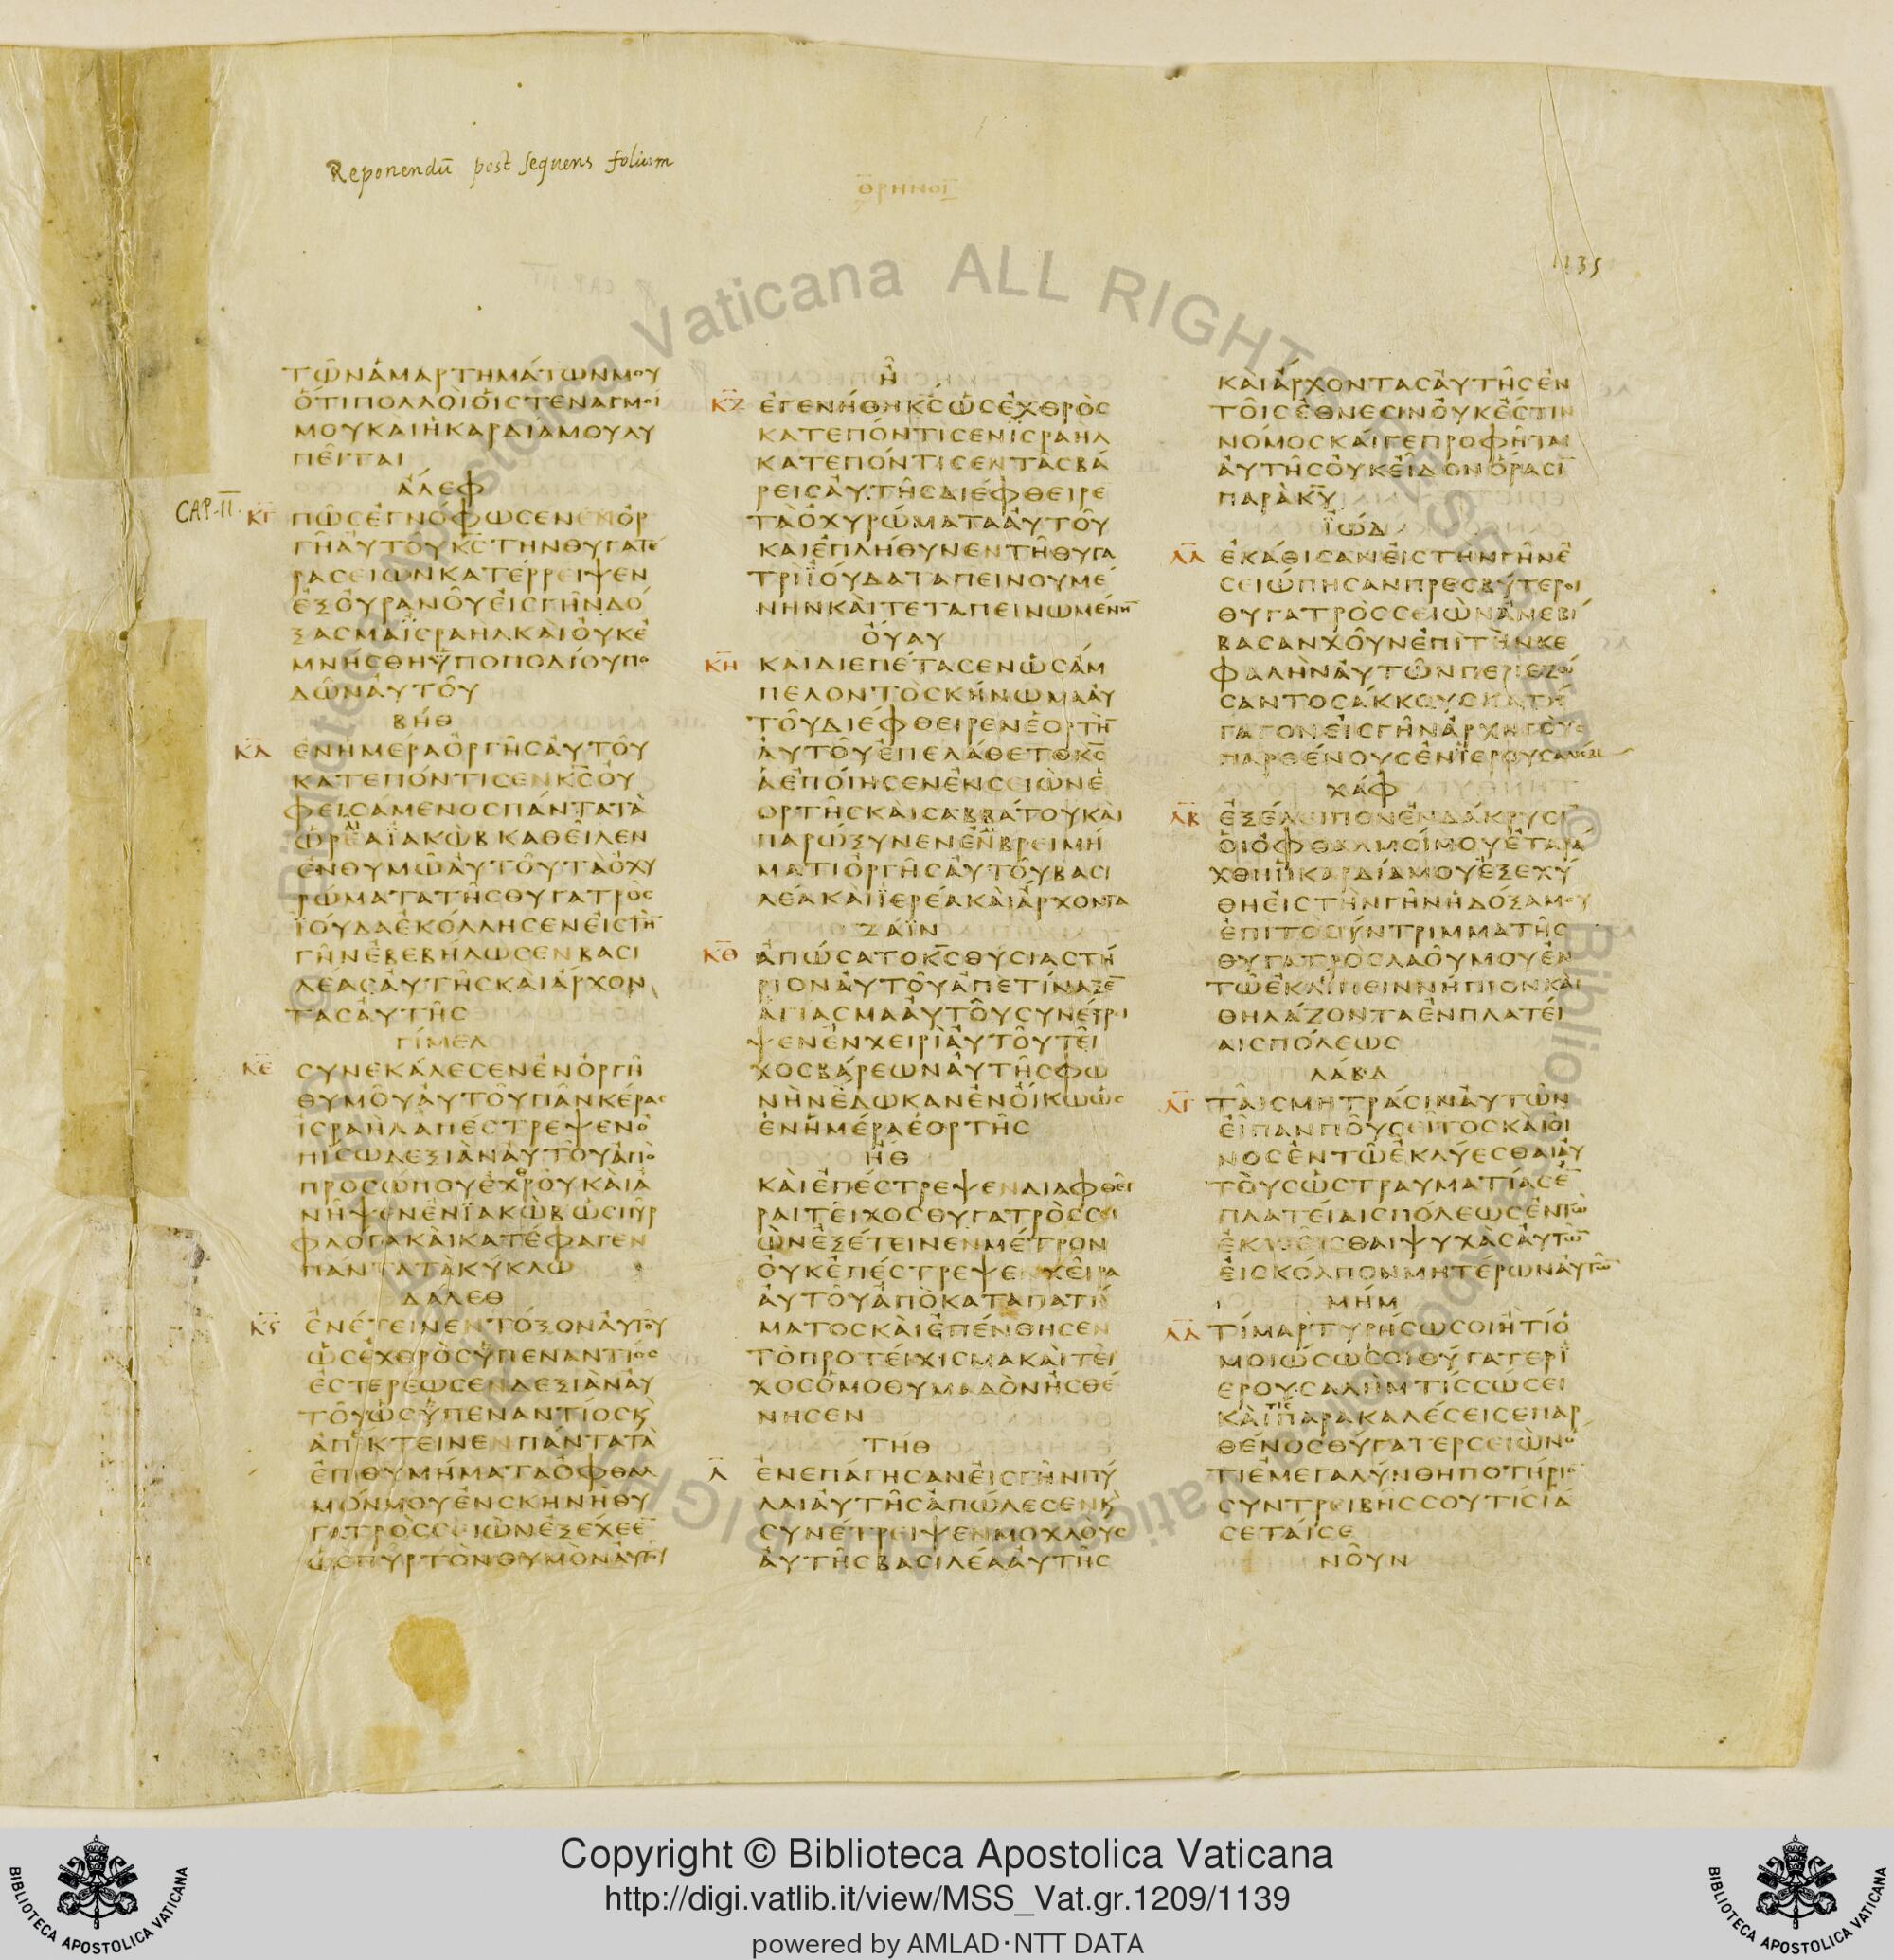 Reponendū post sequens folium
1135
ΤΩ͂ΝἉΜΑΡΤΗΜΆΤΩΝΜΟΥ
ὉΤΙΠΟΛΛΟῚΟἹϹΤΕΝΑΓΜΟΙ
ΜΟΥΚΑΙἩΚΑΡΔΙΑΜΟΥΛΥ
ΠΕΙΤΑΙ
ἌΛΕΦ
CAP. II.
Κ̅Γ̅ ΠΩ͂ϹἘΓΝΌΦΩϹΕΝΕΝὈΡ
ΓΗ͂ΑΥΤΟΥΚ̅Ϲ̅ΤΗΝΘΥΓΑΤΕ
ΡΑϹΕΙΩΝΚΑΤΈΡΡΕΙΨΕΝ
ἘΞΟΥΡΑΝΟΥ͂ΕἸϹΓΗ͂ΝΔΌ
ΞΑϹΜΑΪϹΡΑΗΛΚΑῚΟΥΚἘ
ΜΝΉϹΘΗὙΠΟΠΟΔΊΟΥΠΟ
ΔΩ͂ΝΑΥΤΟΥ͂
ΒΉΘ
Κ̅Δ̅ ἘΝΗΜΈΡΑὈΡΓΗ͂ϹΑΥΤΟΥ͂
ΚΑΤΕΠΌΝΤΙϹΕΝΚ̅Ϲ̅ΟΥ
ΦΕΙϹΆΜΕΝΟϹΠΆΝΤΑΤᾺ
ὩΡΑΙΑΪΑΚῺΒΚΑΘΕΙ͂ΛΕΝ
ἘΝΘΥΜΩ͂ΑΥΤΟΥ͂ΤΑὈΧΥ
ΡΏΜΑΤΑΤΗ͂ϹΘΥΓΑΤΡῸϹ
ΪΟΎΔΑἘΚΌΛΛΗϹΕΝΕἸϹΤΗ̅
ΓΗ͂ΝἘΒΕΒΉΛΩϹΕΝΒΑϹΙ
ΛΈΑϹΑΥΤΗ͂ϹΚΑῚἌΡΧΟΝ
ΤΑϹΑΥΤΗ͂Ϲ
ΓΊΜΕΛ
Κ̅Ε̅ ϹΥΝΕΚΆΛΕϹΕΝἘΝὈΡΓΗ͂
ΘΥΜΟΥ͂ΑΥΤΟΥ͂ΠΑ͂ΝΚΈΡΑϹ
ἸϹΡΑΗΛΑΠΈϹΤΡΕΨΕΝΟ
ΠΊϹΩΔΕΞΙᾺΝΑΥΤΟΥ͂ἈΠΟ
ΠΡΟϹΏΠΟΥἘΧΘΡΟΥ͂ΚΑῚἈ
ΝΗΨΕΝἘΝΪΑΚῺΒὩϹΠΥ͂Ρ
ΦΛΟΓΑΚΑῚΚΑΤΈΦΑΓΕΝ
ΠΆΝΤΑΤᾺΚΎΚΛΩ
ΔΆΛΕΘ
Κ̅Ϛ̅ ἘΝΈΤΕΙΝΕΝΤΌΞΟΝΑΥΤΟΥ͂
ὩϹἘΧΘΡῸϹὙΠΕΝΑΝΤΙΟϹ
ἘϹΤΕΡΈΩϹΕΝΔΕΞΙᾺΝΑΥ
ΤΟΥ͂ὩϹὙΠΕΝΑΝΤΊΟϹΚ
ἈΠΈΚΤΕΙΝΕΝΠΆΝΤΑΤᾺ
ἘΠΙΘΥΜΉΜΑΤΑὈΦΘΑΛ
ΜΩΝΜΟΥἘΝϹΚΗΝΗ͂ΘΥ
ΓΑΤΡῸϹϹΙΩΝἘΞΈΧΕΕ̅
ὩϹΠΥ͂ΡΤῸΝΘΥΜῸΝΑΥΤΟΥ͂
Ἦ
Κ̅Ζ̅ ἘΓΕΝΉΘΗΚ̅Ϲ̅ὩϹἘΧΘΡῸϹ
ΚΑΤΕΠΌΝΤΙϹΕΝἸϹΡΑΗΛ
ΚΑΤΕΠΌΝΤΙϹΕΝΤΑϹΒΆ
ΡΕΙϹΑΥΤΗ͂ϹΔΙΈΦΘΕΙΡΕ
ΤΑὈΧΥΡΏΜΑΤΑΑΥΤΟΥ͂
ΚΑΙἘΠΛΉΘΥΝΕΝΤΗ͂ΘΥΓΑ
ΤΡῚΪΟΎΔΑΤΑΠΕΙΝΟΥΜΈ
ΝΗΝΚΑῚΤΕΤΑΠΕΙΝΩΜΈΝΗ̅
ΟΥΑΥ
Κ̅Η̅ ΚΑῚΔΙΕΠΈΤΑϹΕΝὩϹἌΜ
ΠΕΛΟΝΤῸϹΚΉΝΩΜΑΑΥ
ΤΟΥ͂ΔΙΈΦΘΕΙΡΕΝἙΟΡΤῊ̅
ΑΥΤΟΥ͂ἘΠΕΛΆΘΕΤΟΚ̅Ϲ̅
ἉἘΠΟΊΗϹΕΝἘΝϹΕΙῺΝἘ
ΟΡΤΗ͂ϹΚΑῚϹΑΒΒΆΤΟΥΚΑῚ
ΠΑΡΏΞΥΝΕΝἘΜΒΡΕΙΜΉ
ΜΑΤΙὈΡΓΗ͂ϹΑΥΤΟΥ͂ΒΑϹΙ
ΛΈΑΚΑῚΪΕΡΈΑΚΑῚἌΡΧΟΝΤΑ
ΖΆΪΝ
Κ̅Θ̅ ἈΠΏϹΑΤΟΚ̅Ϲ̅ΘΥϹΙΑϹΤΉ
ΡΙΟΝΑΥΤΟΥ͂ἈΠΕΤΊΝΑΞΕ̅
ἉΓΙΑϹΜΑΑΥΤΟΥ͂ϹΥΝΈΤΡΙ
ΨΕΝἘΝΧΕΙΡῚΑΥΤΟΥ͂ΤΕΙ͂
ΧΟϹΒΆΡΕΩΝΑΥΤΗ͂ϹΦΩ
ΝῊΝἜΔΩΚΑΝἘΝΟἼΚΩὩϹ
ἘΝἩΜΈΡΑἙΟΡΤΗ͂Ϲ
ἨΘ
ΚΑῚἘΠΈϹΤΡΕΨΕΝΔΙΑΦΘΕΙ
ΡΑΙΤΕΙΧΟϹΘΥΓΑΤΡῸϹϹΙ
ῺΝἘΞΈΤΕΙΝΕΝΜΈΤΡΟΝ
ΟΥΚἘΠΈϹΤΡΕΨΕΝΧΕΙ͂ΡΑ
ΑΥΤΟΥ͂ἈΠῸΚΑΤΑΠΑΤΉ
ΜΑΤΟϹΚΑῚἘΠΈΝΘΗϹΕΝ
ΤῸΠΡΟΤΕΊΧΙϹΜΑΚΑῚΤΕΙ͂
ΧΟϹὉΜΟΘΥΜΑΔῸΝἨϹΘΈ
ΝΗϹΕΝ
ΤΉΘ
Λ̅ ἘΝΕΠΆΓΗϹΑΝΕἸϹΓΗ͂ΝΠΎ
ΛΑΙΑΥΤΗ͂ϹἈΠΏΛΕϹΕΝΚ
ϹΥΝΈΤΡΕΙΨΕΝΜΟΧΛΟῪϹ
ΑΥΤΗ͂ϹΒΑϹΙΛΈΑΑΥΤΗ͂Ϲ
ΚΑῚἌΡΧΟΝΤΑϹΑΥΤΗ͂ϹἘΝ
ΤΟΙ͂ϹἜΘΝΕϹΙΝΟΥΚἜϹΤΙΝ
ΝΌΜΟϹΚΑΊΓΕΠΡΟΦΗ͂ΤΑΙ
ΑΥΤΗ͂ϹΟΥΚΕΙ͂ΔΟΝὉΡΑϹΙ̅
ΠΑΡᾺΚ̅Υ̅
ἸΏΔ
Λ̅Α̅ ἘΚΆΘΙϹΑΝΕἸϹΤΗΝΓΗ͂ΝἘ
ϹΕΙΏΠΗϹΑΝΠΡΕϹΒΎΤΕΡΟΙ
ΘΥΓΑΤΡῸϹϹΕΙῺΝἈΝΕΒΊ
ΒΑϹΑΝΧΟΥ͂ΝἘΠῚΤῊΝΚΕ
ΦΑΛῊΝΑΥΤΩ͂ΝΠΕΡΙΕΖΩ
ϹΑΝΤΟϹΆΚΚΟΥϹΚΑΤΉ
ΓΑΓΟΝΕἸϹΓΗ͂ΝἈΡΧΗΓΟῪϹ
ΠΑΡΘΈΝΟΥϹἘΝἸΕΡΟΥϹΑΛΗΜ
ΧΆΦ
Λ̅Β̅ ἘΞΈΛΕΙΠΟΝἘΝΔΆΚΡΥϹΙ̅
ΟἹὈΦΘΑΛΜΟΊΜΟΥἘΤΑΡΆ
ΧΘΗἩΚΑΡΔΊΑΜΟΥἘΞΕΧΎ
ΘΗΕἸϹΤῊΝΓΗ͂ΝἩΔΌΞΑΜΟΥ
ἘΠΙΤΟϹΎΝΤΡΙΜΜΑΤΗ͂Ϲ
ΘΥΓΑΤΡῸϹΛΑΟΥ͂ΜΟΥἘΝ
ΤΩ͂ἘΚΛΊΠΕΙΝΝΉΠΙΟΝΚΑῚ
ΘΗΛΆΖΟΝΤΑἘΝΠΛΑΤΕΊ
ΑΙϹΠΌΛΕΩϹ
ΛΆΒΔ
Λ̅Γ̅ ΤΑΙ͂ϹΜΗΤΡΆϹΙΝΑΥΤΩ͂Ν
ΕΙ͂ΠΑΝΠΟΥ͂ϹΕΙΤΟϹΚΑῚΟΙ
ΝΟϹἘΝΤΩ͂ἘΚΛΎΕϹΘΑΙΑΥ
ΤΟῪϹὩϹΤΡΑΥΜΑΤΊΑϹἘ̅
ΠΛΑΤΕΊΑΙϹΠΌΛΕΩϹἘΝΤΩ͂
ἘΚΧΕΙϹΘΑΙΨΥΧᾺϹΑΥΤΩ̅
ΕἸϹΚΌΛΠΟΝΜΗΤΈΡΩΝΑΥΤΩ̅
ΜΉΜ
Λ̅Δ̅ ΤΊΜΑΡΤΥΡΉϹΩϹΟΙἨΤΊὉ
ΜΟΙΏϹΩϹΟΙΘΎΓΑΤΕΡἸ
ΕΡΟΥϹΑΛΗΜΤΊϹϹΏϹΕΙ
ΚΑῚΤΙϹΠΑΡΑΚΑΛΈϹΕΙϹΕΠΑΡ
ΘΈΝΟϹΘΎΓΑΤΕΡϹΕΙῺΝΟ
ΤΙἘΜΕΓΑΛΎΝΘΗΠΟΤΉΡΙΟ
ϹΥΝΤΡΕΙΒΗ͂ϹϹΟΥΤΊϹἸΆ
ϹΕΤΑΊϹΕ
ΝΟΥ͂Ν
Copyright © Biblioteca Apostolica Vaticana
http://digi.vatlib.it/view/MSS_Vat.gr.1209/1139
powered by AMLAD·NTT DATA
BIBLIOTECA APOSTOLICA VATICANA
BIBLIOTECA APOSTOLICA VATICANA